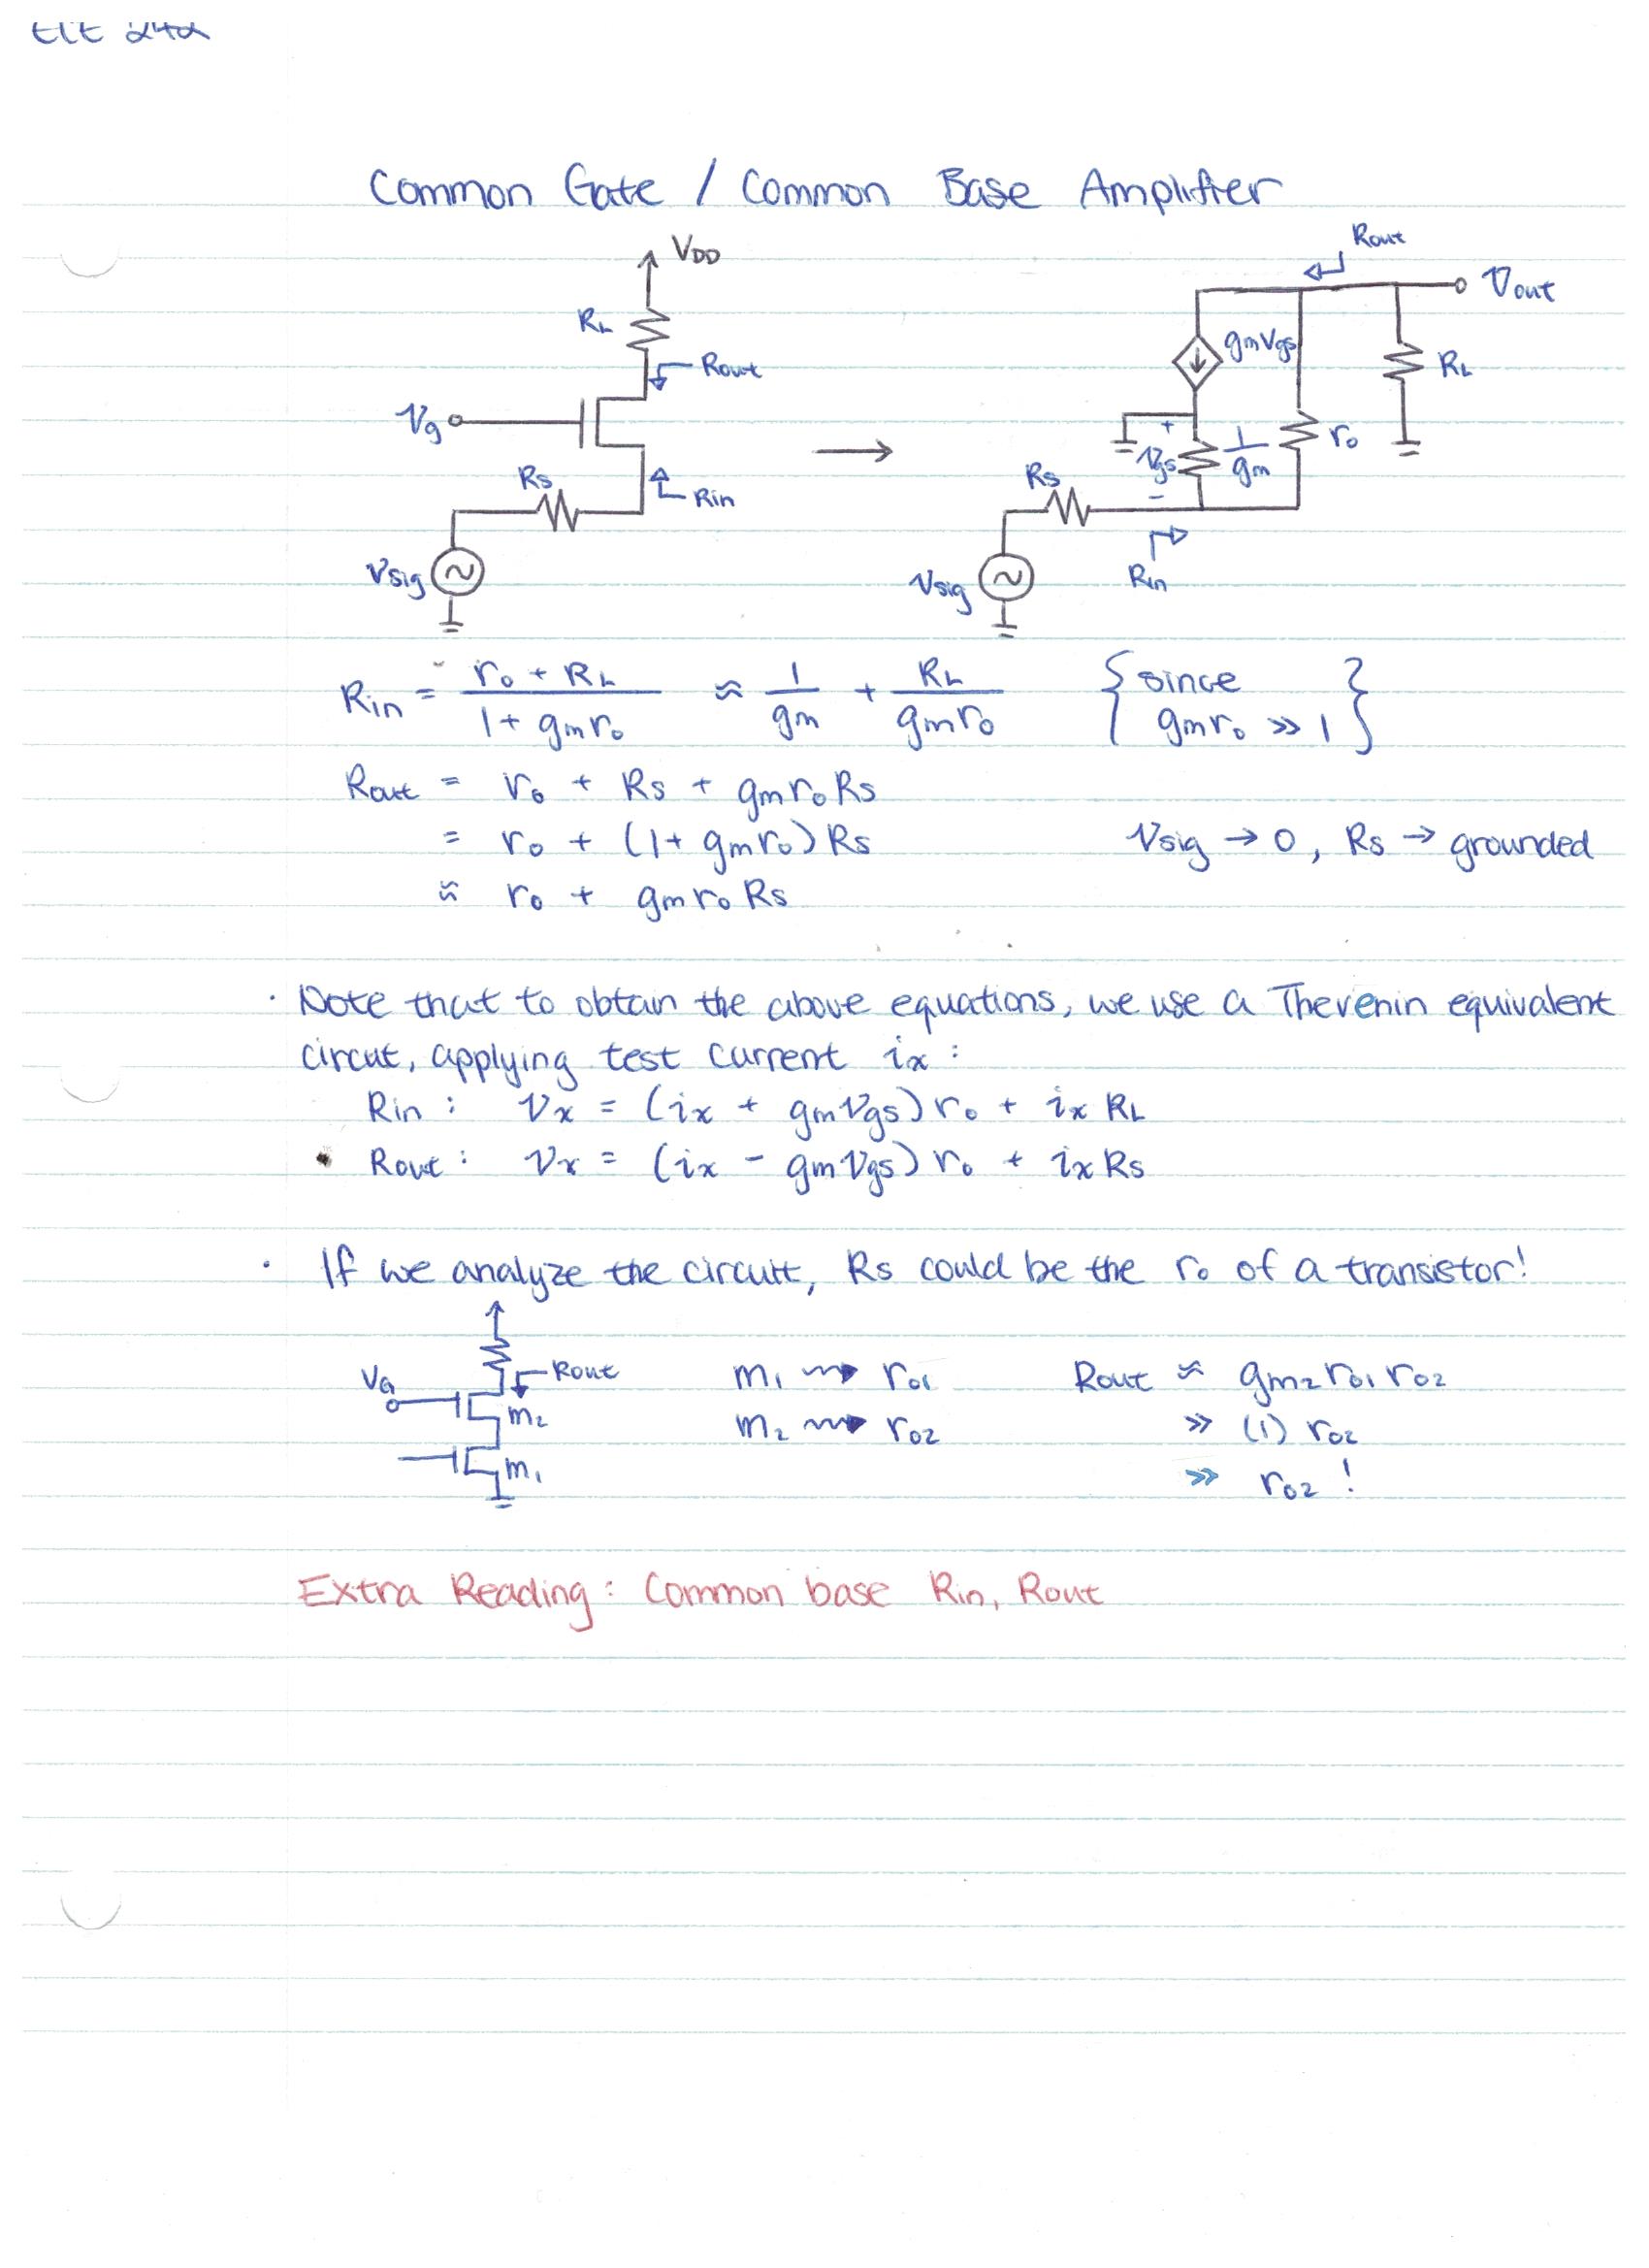 Common Gate / Common Base Amplifier
VDD
RL
Rout
Vg
Rs
Rin
Vsig
Rout
Vout
gmVgs
RL
+
Vgs
-
1/gm
ro
Rs
Rin
Vsig
Rin = (ro + RL)/(1 + gmro) ≈ 1/gm + RL/(gmro) { since gmro >> 1 }
Rout = ro + Rs + gmroRs
= ro + (1 + gmro)Rs Vsig → 0, Rs → grounded
≈ ro + gmroRs
· Note that to obtain the above equations, we use a Thevenin equivalent
circut, applying test current ix :
Rin : Vx = (ix + gmVgs)ro + ixRL
Rout : Vx = (ix - gmVgs)ro + ixRs
· If we analyze the circuit, Rs could be the ro of a transistor!
Rout
VG
m2
m1
m1 → ro1 Rout ≈ gm2ro1ro2
m2 → ro2 >> (1) ro2
>> ro2 !
Extra Reading : Common base Rin, Rout